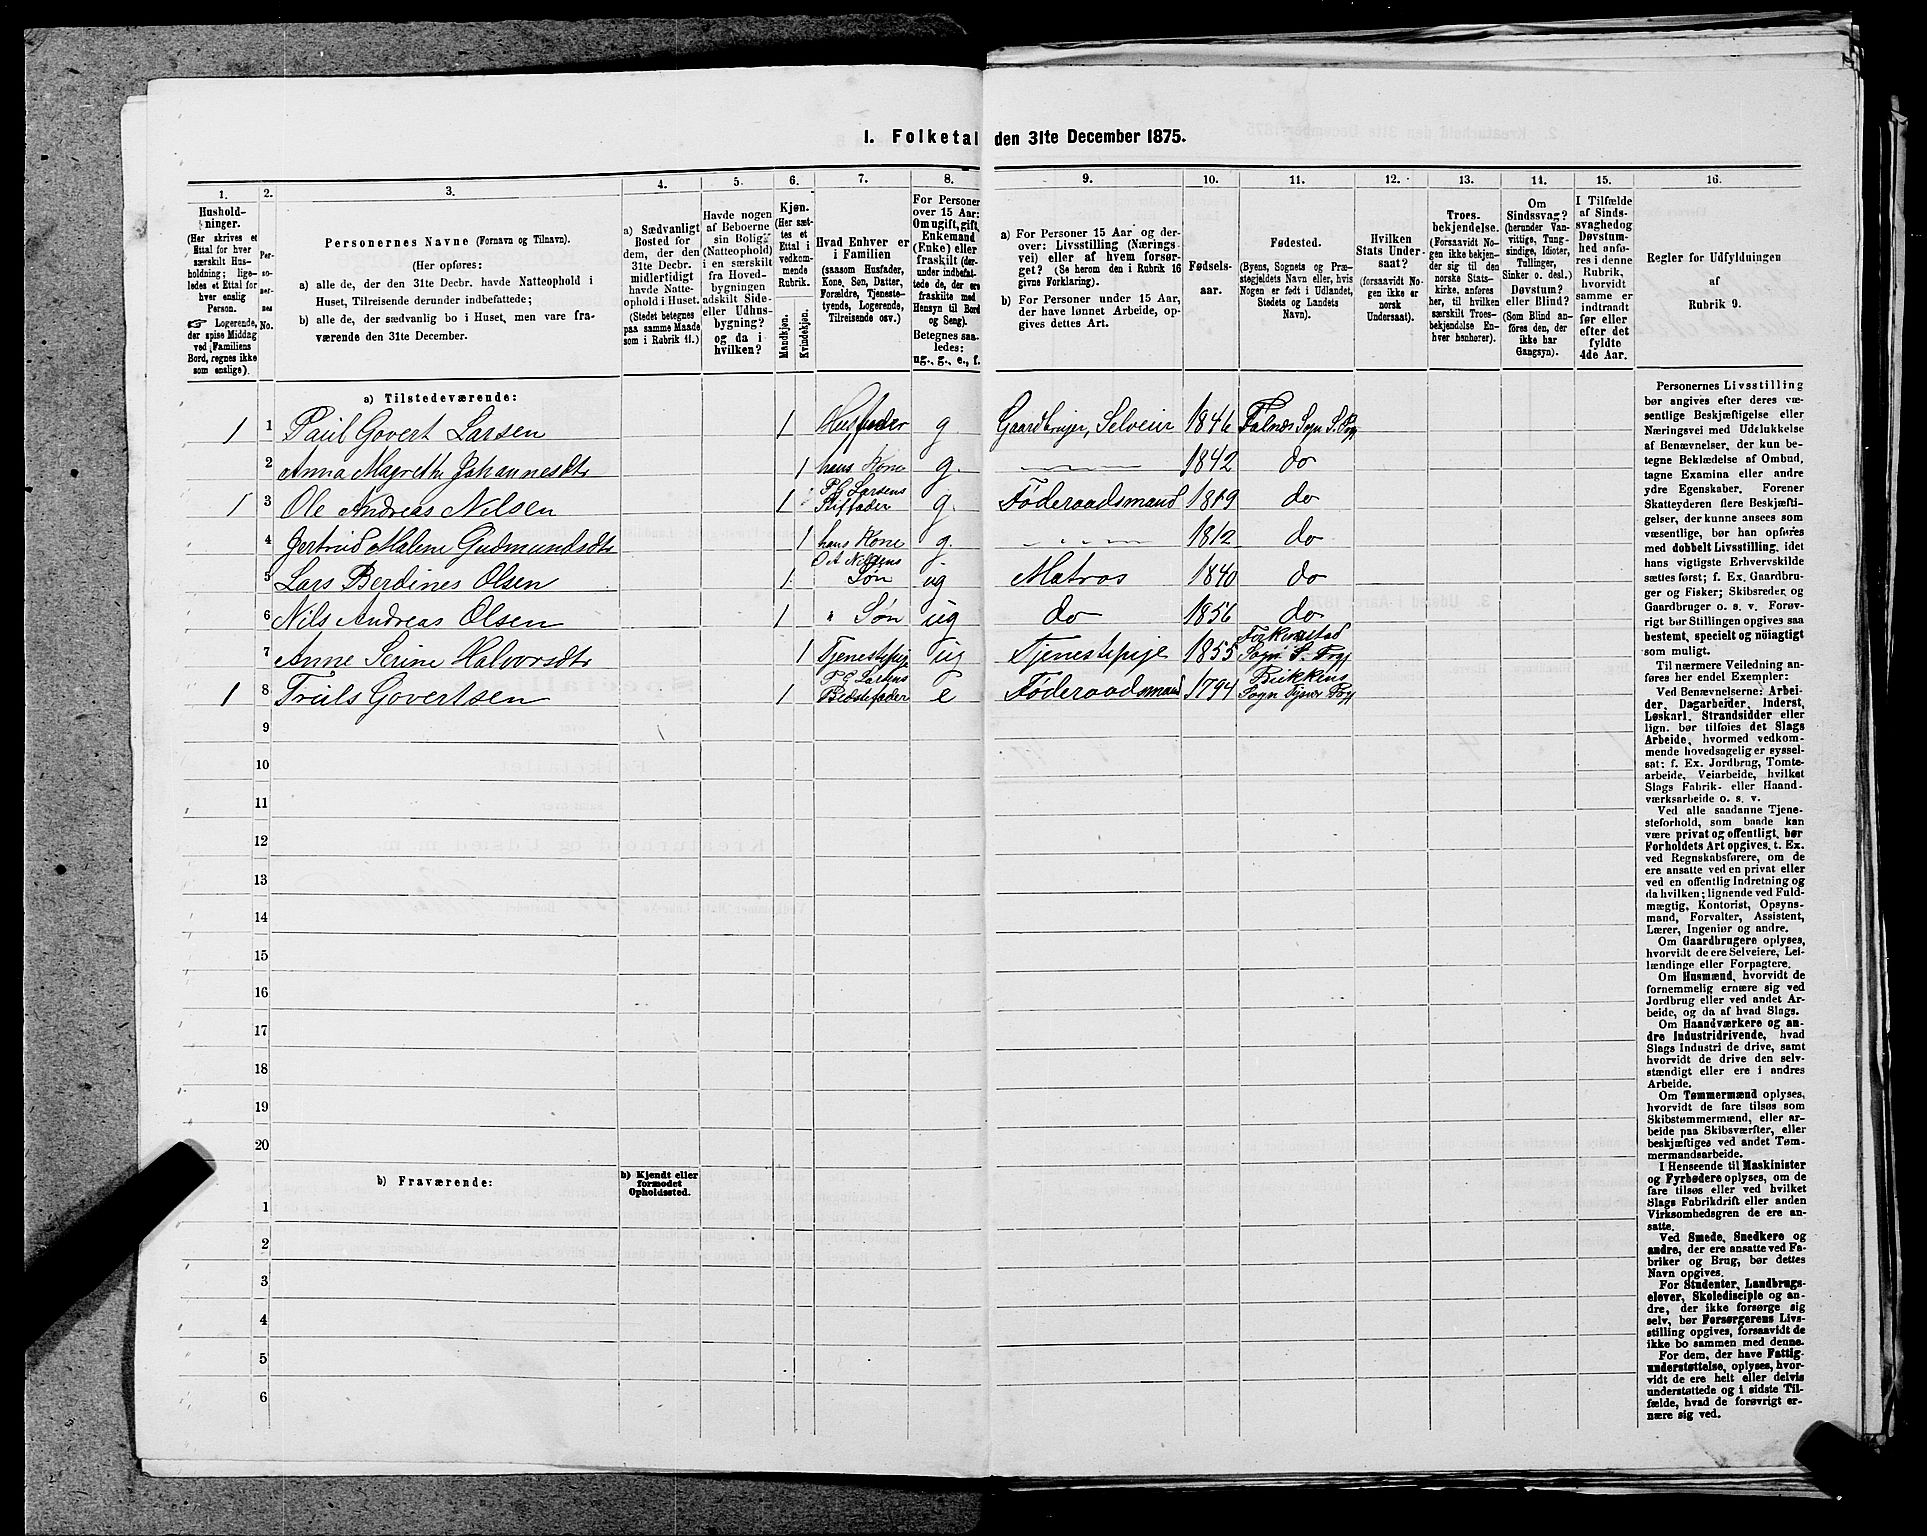 I. Folketal den 31te December 1875.
1. 2. 3. 4. 5. 6. 7. 8. 9. 10. 11. 12. 13. 14. 15. 16.
Hushold-
ninger.
(Her skrives et
Ettal for hver
særskilt Hus-
holdning; lige-
ledes et Ettal for
hver enslig
Person.
☞ Logerende,
der spise Middag
ved Familiens
Bord, regnes ikke
som enslige).
Per-
so-
ner-
nes
No.
Personernes Navne (Fornavn og Tilnavn).
(Her opføres:
a) alle de, der den 31te Decbr. havde Natteophold i
Huset, Tilreisende derunder indbefattede;
b) alle de, der sædvanlig bo i Huset, men vare fra-
værende den 31te December.
a) Sædvanligt
Bosted for
dem, der den
31te Decbr.
midlertidigt
havde Natte-
ophold i Huset.
(Stedet betegnes
paa samme Maade
som i Rubrik 11.)
Havde nogen
af Beboerne
sin Bolig
(Natteophold)
i en særskilt
fra Hoved-
bygningen
adskilt Side-
eller Udhus-
bygning?
og da i
hvilken?
Kjøn.
(Her sæt-
tes et
Ettal i
vedkom-
mende
Rubrik.
Mandkjøn.
Kvindekjøn.
Hvad Enhver er
i Familien
(saasom Husfader,
Kone, Søn, Datter,
Forældre, Tjeneste-
tyende, Logerende,
Tilreisende osv.)
For Personer
over 15 Aar:
Om ugift, gift,
Enkemand
(Enke) eller
fraskilt (der-
under indbefat-
tede de, der ere
fraskilte med
Hensyn til Bord
og Seng).
Betegnes saa-
ledes:
ug., g., e., f.
a) For Personer 15 Aar og der-
over: Livsstilling (Nærings-
vei) eller af hvem forsør-
get? (Se herom den i Rubrik 16
givne Forklaring).
b) For Personer under 15 Aar,
der have lønnet Arbeide, op-
gives dettes Art.
Fødsels-
aar.
Fødested.
(Byens, Sognets og Præ-
stegjeldets Navn eller, hvis
Nogen er født i Udlandet,
Stedets og Landets
Navn).
Hvilken
Stats Under-
saat?
(forsaavidt No-
gen ikke er
norsk
Undersaat).
Troes-
bekjendelse.
(Forsaavidt No-
gen ikke bekjen-
der sig til den
norske Stats-
kirke, anføres
her, til hvilken
særskilt Troes-
bekjendelse En-
hver henhører).
Om
Sindssvag?
(herunder Van-
vittige, Tung-
sindige, Idioter,
Tullinger,
Sinker o. desl.)
Døvstum?
eller Blind?
(Som Blind an-
føres den, der
ikke har
Gangsyn).
I Tilfælde
af Sinds-
svaghed og
Døvstum-
hed anfø-
res i denne
Rubrik,
hvorvidt
samme er
indtraadt
før eller
efter det
fyldte
4de Aar.
Regler for Udfyldningen
af
Rubrik 9.
a) Tilstedeværende:
1 1 Paul Govert Larsen 1 Husfader g Gaardbruger, Selveier 1846 Falnæs Sogn
2 Anna Magrethe Johannesdtr 1 hans Kone g. 1842 do
P G Larsens
1 3 Ole Andreas Nilsen 1 Stiffader g. Føderaadsmand 1819 do
4 Jertrud Malene Gudmundsdtr 1 hans Kone g. 1812 do
O A Nilsens
5 Lars Berdines Olsen 1 Søn ug Matros 1840 do
6 Nils Andreas Olsen 1 " Søn ug do 1856 do
7 Anne Serine Halvorsdtr 1 Tjenestepige ug Tjenestepige 1855 Sogn
P G Larsens
1 8 Truls Govertsen 1 Bedstefader e Føderaadsmand 1794 Sogn
9
10
11
12
13
14
15
16
17
18
19
20
b) Fraværende:
b) Kjendt eller
formodet
Opholdssted.
1
2
3
4
5
6
Personernes Livsstilling
bør angives efter deres væ-
sentlige Beskjæftigelse eller
Næringsvei med Udelukkelse
af Benævnelser, der kun be-
tegne Beklædelse af Ombud,
tagne Examina eller andre
ydre Egenskaber. Forener
Skatteyderen flere Beskjæfti-
gelser, der kunne ansees som
væsentlige, bør han opføres
med dobbelt Livsstilling, idet
hans vigtigste Erhvervskilde
sættes først; f. Ex. Gaardbru-
ger og Fisker; Skibsreder og
Gaardbruger o. s. v. Forøv-
rigt bør Stillingen opgives saa
bestemt, specielt og nøiagtigt
som muligt.
Til nærmere Veiledning an-
føres her endel Exempler:
Ved Benævnelserne: Arbei-
der, Dagarbeider, Inderst,
Løskarl, Strandsidder eller
lign. bør tilføies det Slags
Arbeide, hvormed vedkom-
mende hovedsagelig er syssel-
sat; f. Ex. Jordbrug, Tomte-
arbeide, Veiarbeide, hvilket
Slags Fabrik- eller Haand-
værksarbeide o. s. v.
Ved alle saadanne Tjene-
steforhold, som baade kan
være privat og offentligt, bør
Forholdets Art opgives, t. Ex.
ved Regnskabsførere, om de
ere ansatte ved en privat eller
ved en offentlig Indretning og
da hvilken; lignende ved Fuld-
mægtig, Kontorist, Opsyns-
mand, Forvalter, Assistent,
Lærer, Ingeniør og andre.
Om Gaardbrugere oplyses,
hvorvidt de ere Selveiere, Lei-
lændinge eller Forpagtere.
Om Husmænd, hvorvidt de
fornemmelig ernære sig ved
Jordbrug eller ved andet Ar-
beide, og da af hvad Slags.
Om Haandværkere og an-
dre Industridrivende, hvad
Slags Industri de drive, samt
hvorvidt de drive den selv-
stændigt eller ere i andres
Arbeide.
Om Tømmermænd oplyses,
hvorvidt de fare tilsøs som
Skibstømmermænd, eller ar-
beide paa Skibsværfter, eller
beskjæftiges ved andet Tøm-
mermandsarbeide.
I Henseende til Maskinister
og Fyrbødere oplyses, om de
fare tilsøs eller ved hvilket
Slags Fabrikdrift eller anden
Virksomhedsgren de ere an-
satte.
Ved Smede, Snedkere og
andre, der ere ansatte ved Fa-
briker og Brug, bør dettes
Navn opgives.
For Studenter, Landbrugs-
elever, Skoledisciple og an-
dre, der ikke forsørge sig
selv, bør Forsørgerens Livs-
stilling opgives, forsaavidt de
ikke bo sammen med denne.
For dem, der have Fattig-
understøttelse, oplyses, hvor-
vidt de ere helt eller delvis
understøttede og i sidste Til-
fælde, hvad de forøvrigt er-
nære sig ved.